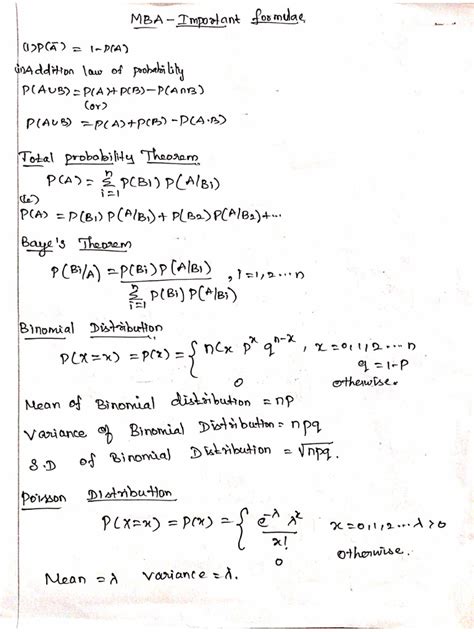 MBA - Important formulae
(i) P(Ā) = 1 - P(A)
(ii) Addition law of probability
P(A∪B) = P(A) + P(B) - P(A∩B)
(or)
P(A∪B) = P(A) + P(B) - P(A·B)
Total probability Theorem
P(A) = n Σ i=1 P(Bi) P(A/Bi)
(ie)
P(A) = P(B1) P(A/B1) + P(B2) P(A/B2) + ...
Baye's Theorem
P(Bi/A) = P(Bi) P(A/Bi) / n Σ i=1 P(Bi) P(A/Bi) , i = 1, 2 ... n
Binomial Distribution
P(X=x) = P(x) = { nCx p^x q^(n-x) , x = 0, 1, 2 ... n
q = 1-P
0 otherwise.
Mean of Binomial distribution = np
Variance of Binomial Distribution = npq
S.D of Binomial Distribution = √npq.
Poisson Distribution
P(X=x) = P(x) = { e^-λ λ^x / x! x = 0, 1, 2 ... λ>0
0 otherwise.
Mean = λ Variance = λ.